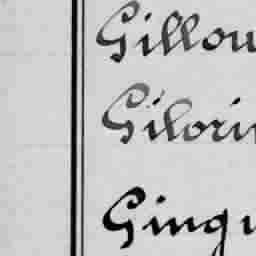 Gillou
Gilori
Gingu